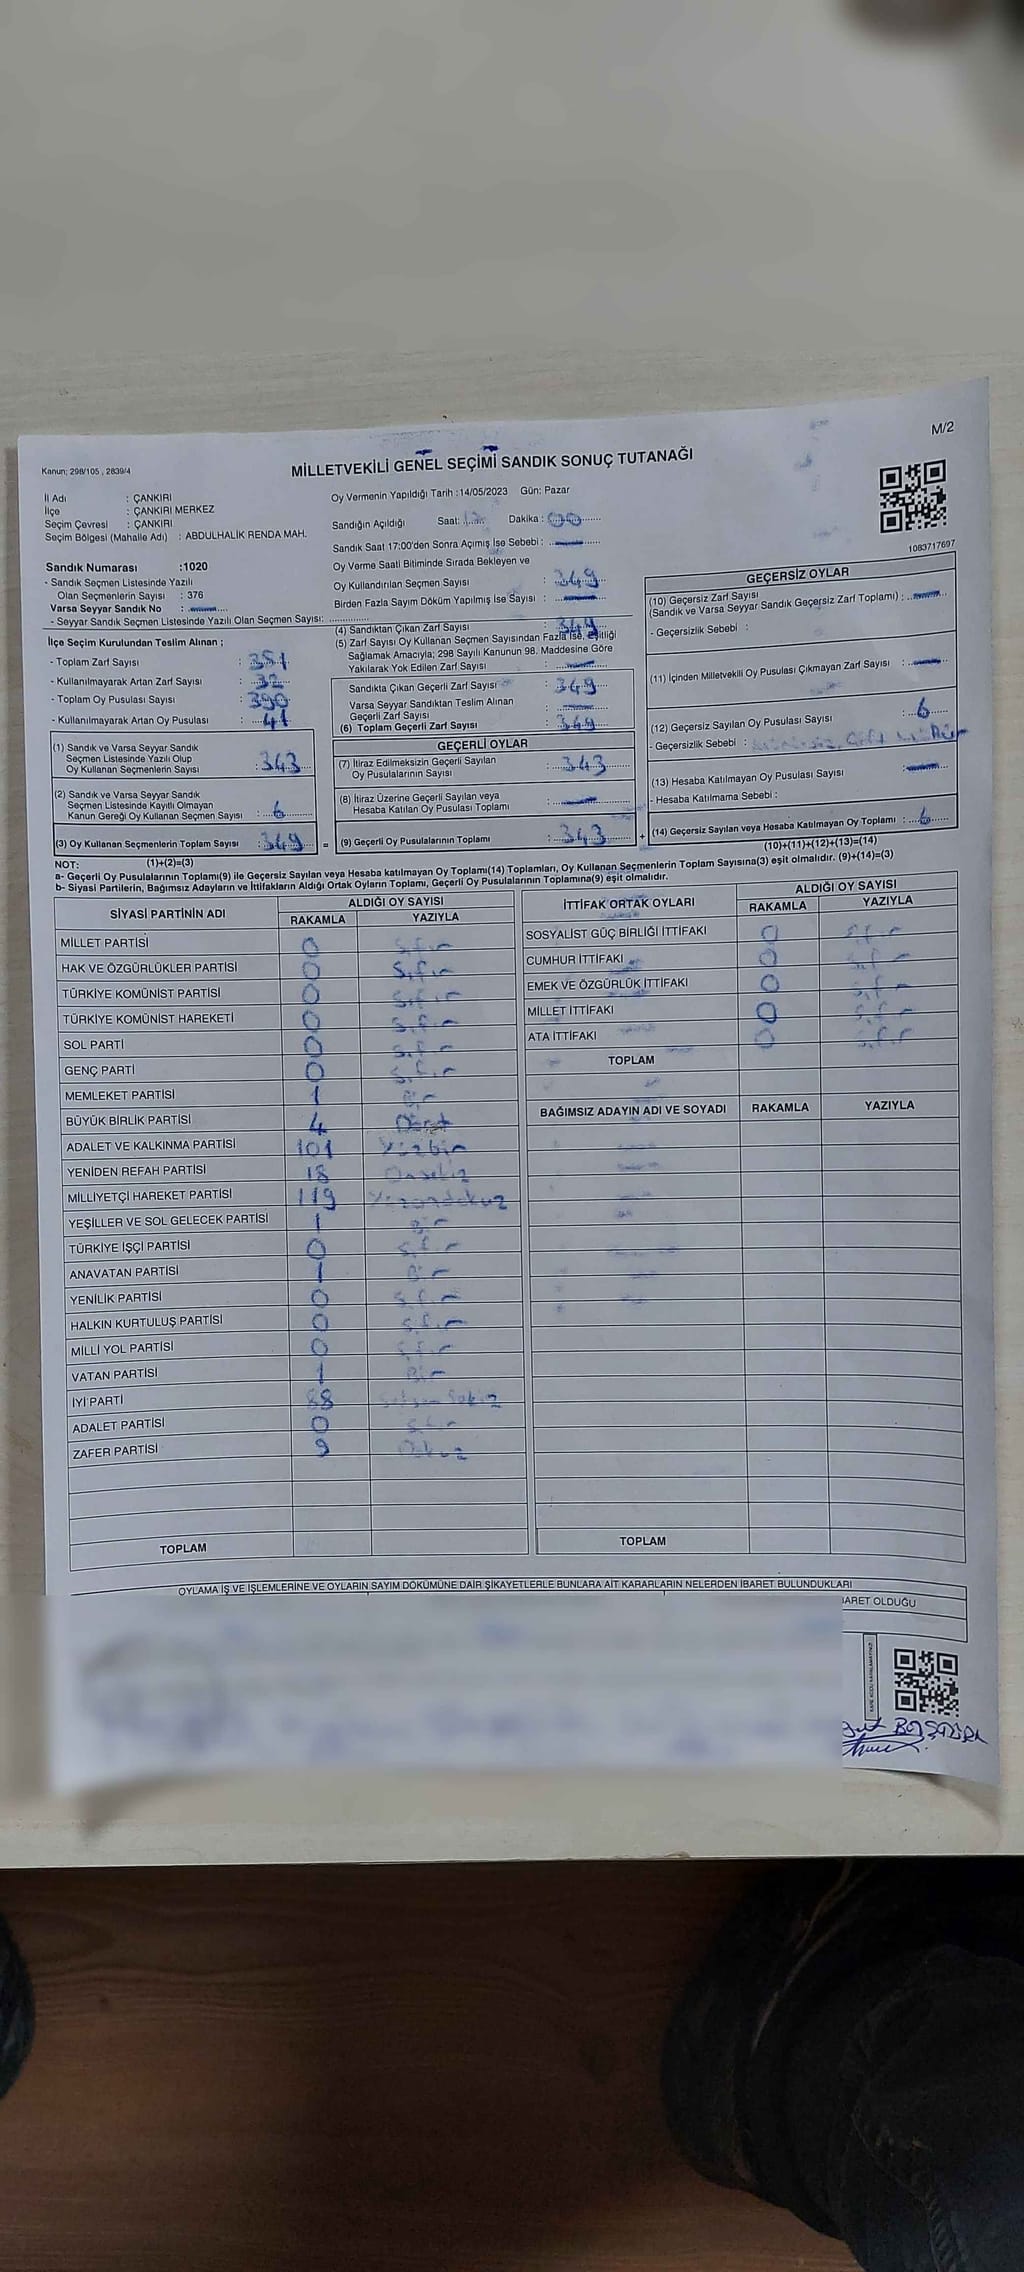 M/2
Kanun; 298/105 , 2839/4
MİLLETVEKİLİ GENEL SEÇİMİ SANDIK SONUÇ TUTANAĞI
İl Adı : ÇANKIRI
İlçe : ÇANKIRI MERKEZ
Seçim Çevresi : ÇANKIRI
Seçim Bölgesi (Mahalle Adı) : ABDULHALİK RENDA MAH.
Sandık Numarası :1020
- Sandık Seçmen Listesinde Yazılı
Olan Seçmenlerin Sayısı : 376
Varsa Seyyar Sandık No :
- Seyyar Sandık Seçmen Listesinde Yazılı Olan Seçmen Sayısı:
İlçe Seçim Kurulundan Teslim Alınan ;
- Toplam Zarf Sayısı :
- Kullanılmayarak Artan Zarf Sayısı : 32
- Toplam Oy Pusulası Sayısı : 390
- Kullanılmayarak Artan Oy Pusulası : 41
(1) Sandık ve Varsa Seyyar Sandık
Seçmen Listesinde Yazılı Olup
Oy Kullanan Seçmenlerin Sayısı : 343
(2) Sandık ve Varsa Seyyar Sandık
Seçmen Listesinde Kayıtlı Olmayan
Kanun Gereği Oy Kullanan Seçmen Sayısı : 6
(3) Oy Kullanan Seçmenlerin Toplam Sayısı : 349 =
Oy Vermenin Yapıldığı Tarih :14/05/2023 Gün: Pazar
Sandığın Açıldığı Saat: Dakika : 00
Sandık Saat 17:00'den Sonra Açımış İse Sebebi :
Oy Verme Saati Bitiminde Sırada Bekleyen ve
Oy Kullandırılan Seçmen Sayısı : 349
Birden Fazla Sayım Döküm Yapılmış İse Sayısı :
(4) Sandıktan Çıkan Zarf Sayısı : 349
(5) Zarf Sayısı Oy Kullanan Seçmen Sayısından Fazla İse, Eşitliği
Sağlamak Amacıyla; 298 Sayılı Kanunun 98. Maddesine Göre
Yakılarak Yok Edilen Zarf Sayısı :
Sandıkta Çıkan Geçerli Zarf Sayısı : 349
Varsa Seyyar Sandıktan Teslim Alınan
Geçerli Zarf Sayısı :
(6) Toplam Geçerli Zarf Sayısı : 349
GEÇERLİ OYLAR
(7) İtiraz Edilmeksizin Geçerli Sayılan
Oy Pusulalarının Sayısı : 343
(8) İtiraz Üzerine Geçerli Sayılan veya
Hesaba Katılan Oy Pusulası Toplamı :
(9) Geçerli Oy Pusulalarının Toplamı : 343 +
1083717697
GEÇERSİZ OYLAR
(10) Geçersiz Zarf Sayısı
(Sandık ve Varsa Seyyar Sandık Geçersiz Zarf Toplamı) :
- Geçersizlik Sebebi :
(11) İçinden Milletvekili Oy Pusulası Çıkmayan Zarf Sayısı :
(12) Geçersiz Sayılan Oy Pusulası Sayısı : 6
- Geçersizlik Sebebi :
(13) Hesaba Katılmayan Oy Pusulası Sayısı :
- Hesaba Katılmama Sebebi :
(14) Geçersiz Sayılan veya Hesaba Katılmayan Oy Toplamı : 6
(10)+(11)+(12)+(13)=(14)
NOT: (1)+(2)=(3)
a- Geçerli Oy Pusulalarının Toplamı(9) ile Geçersiz Sayılan veya Hesaba katılmayan Oy Toplamı(14) Toplamları, Oy Kullanan Seçmenlerin Toplam Sayısına(3) eşit olmalıdır. (9)+(14)=(3)
b- Siyasi Partilerin, Bağımsız Adayların ve İttifakların Aldığı Ortak Oyların Toplamı, Geçerli Oy Pusulalarının Toplamına(9) eşit olmalıdır.
SİYASİ PARTİNİN ADI ALDIĞI OY SAYISI
RAKAMLA YAZIYLA
MİLLET PARTİSİ 0 Sıfır
HAK VE ÖZGÜRLÜKLER PARTİSİ 0 Sıfır
TÜRKİYE KOMÜNİST PARTİSİ 0 Sıfır
TÜRKİYE KOMÜNİST HAREKETİ 0 Sıfır
SOL PARTİ 0 Sıfır
GENÇ PARTİ 0 Sıfır
MEMLEKET PARTİSİ 1 Bir
BÜYÜK BİRLİK PARTİSİ 4 Dört
ADALET VE KALKINMA PARTİSİ 101 Yüzbir
YENİDEN REFAH PARTİSİ 18 Onsekiz
MİLLİYETÇİ HAREKET PARTİSİ 119 Yüzondokuz
YEŞİLLER VE SOL GELECEK PARTİSİ 1 Bir
TÜRKİYE İŞÇİ PARTİSİ 0 Sıfır
ANAVATAN PARTİSİ 1 Bir
YENİLİK PARTİSİ 0 Sıfır
HALKIN KURTULUŞ PARTİSİ 0 Sıfır
MİLLİ YOL PARTİSİ 0 Sıfır
VATAN PARTİSİ 1 Bir
İYİ PARTİ 88 Seksen Sekiz
ADALET PARTİSİ 0 Sıfır
ZAFER PARTİSİ 9 Dokuz
TOPLAM
İTTİFAK ORTAK OYLARI ALDIĞI OY SAYISI
RAKAMLA YAZIYLA
SOSYALİST GÜÇ BİRLİĞİ İTTİFAKI 0 Sıfır
CUMHUR İTTİFAKI 0 Sıfır
EMEK VE ÖZGÜRLÜK İTTİFAKI 0 Sıfır
MİLLET İTTİFAKI 0 Sıfır
ATA İTTİFAKI 0 Sıfır
TOPLAM
BAĞIMSIZ ADAYIN ADI VE SOYADI RAKAMLA YAZIYLA
TOPLAM
OYLAMA İŞ VE İŞLEMLERİNE VE OYLARIN SAYIM DÖKÜMÜNE DAİR ŞİKAYETLERLE BUNLARA AİT KARARLARIN NELERDEN İBARET BULUNDUKLARI
BARET OLDUĞU